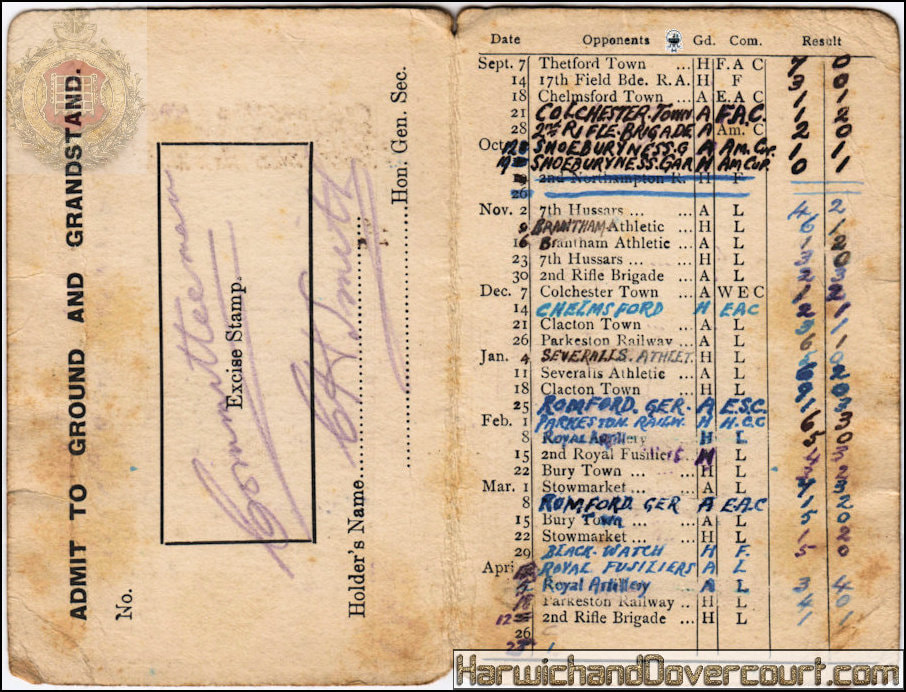 ADMIT TO GROUND AND GRANDSTAND.
No.
Committee man
Excise Stamp.
C H Smith
Holder's Name
Hon. Gen. Sec.
Date Opponents Gd. Com. Result
Sept. 7 Thetford Town ... H F. A C 7 0
14 17th Field Bde. R.A. H F 3 0
18 Chelmsford Town ... A E. A C 1 1
21 COLCHESTER. TOWN A F.A.C. 1 2
28 2nd RIFLE. BRIGADE A Am. C 2 0
Oct. 12 SHOEBURYNESS. G A Am. Cup. 1 1
SHOEBURYNESS. GAR H AM CUP. 0 1
2nd Northampton R. H F
26
Nov. 2 7th Hussars ... ... A L 4 2
9 BRANTHAM Athletic ... H L 6 1
16 Brantham Athletic ... A L
23 7th Hussars ... ... H L
30 2nd Rifle Brigade ... A L
Dec. 7 Colchester Town ... A W E C
14 CHELMSFORD H EAC 2 1
21 Clacton Town ... A L
26 Parkeston Railway ... A L
Jan. 4 SEVERALLS. ATHLET. H L
11 Severalls Athletic ... A L
18 Clacton Town ... H L
25 ROMFORD. GER. A E.S.C.
Feb. 1 PARKESTON. RAILW. A H.C.C 6 3
8 Royal Artillery H L 0
15 2nd Royal Fusiliers H L
22 Bury Town ... ... H L
Mar. 1 Stowmarket ... ... A L
8 ROMFORD GER A E.A.C 1 2
15 Bury Town ... A L 5 0
22 Stowmarket ... ... H L 1 2
29 BLACK. WATCH H F. 5 0
April ROYAL FUSILIERS A L
Royal Artillery A L 3 4
Parkeston Railway ... H L 4 0
12 2nd Rifle Brigade ... H L 1 1
26
HarwichandDovercourt.com